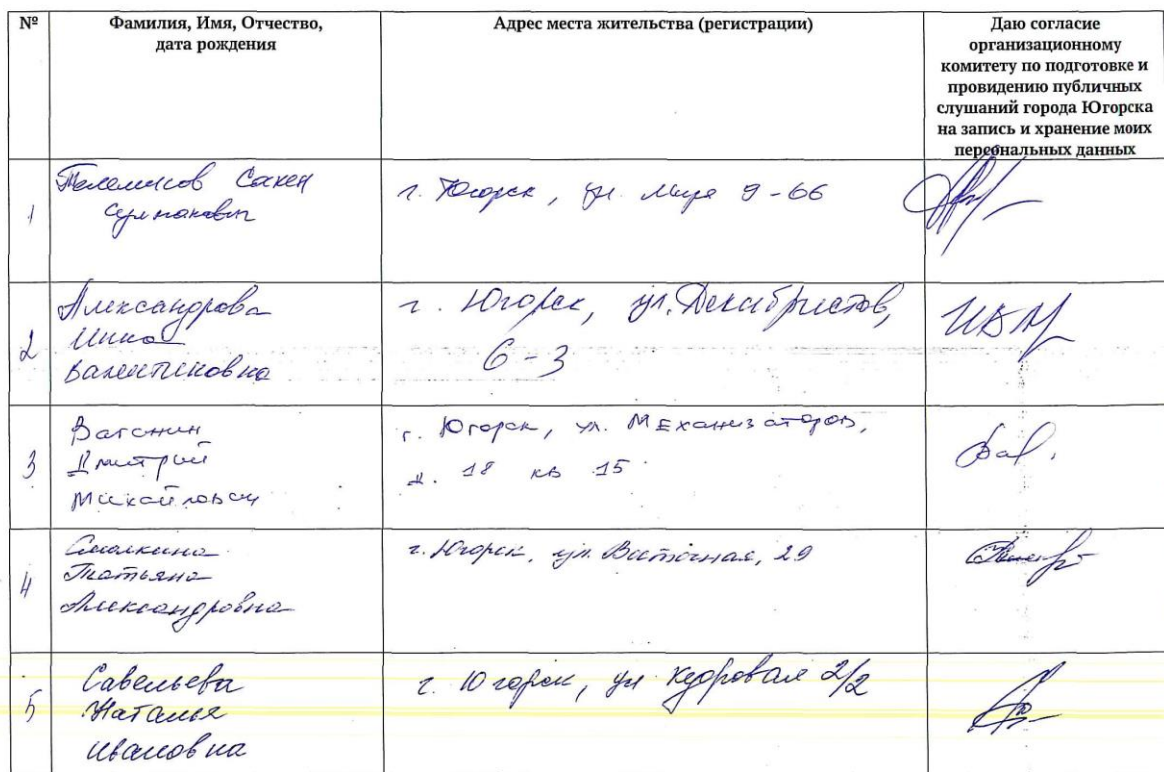 №
Фамилия, Имя, Отчество,
дата рождения
Адрес места жительства (регистрации)
Даю согласие
организационному
комитету по подготовке и
провидению публичных
слушаний города Югорска
на запись и хранение моих
персональных данных
1
Телемисов Сакен
г. Югорск, ул. Мира 9-66
2
Александрова
Инна
Валентиновна
г. Югорск, ул. Декабристов,
6-3
3
Ватонин
Дмитрий
Михайлович
г. Югорск, ул. Механизаторов,
д. 18 кв 15
4
Смолкина
Татьяна
Александровна
г. Югорск, ул. Восточная, 29
5
Савельева
Наталья
Ивановна
г. Югорск, ул Кедровая 2/2